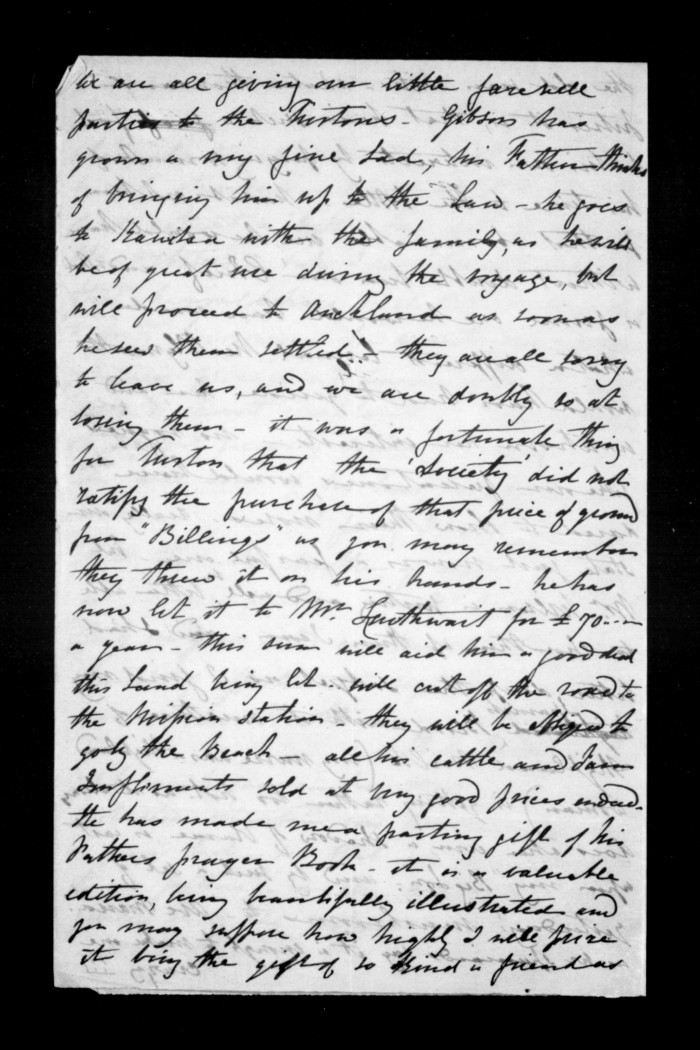 We are all giving our little farewell
parties to the Turtons - Gibson has
grown a very fine Lad, his Father thinks
of bringing him up to the Law - he goes
to Kawhia with the family, as he will
be of great use during the voyage, but
will proceed to Auckland as soon as
he sees them settled - they are all sorry
to leave us, and we are doubly so at
losing them - it was a fortunate thing
for Turton that the 'Society' did not
ratify the purchase of that piece of ground
from "Billings" as you may remember
they threw it on his hands - he has
now let it to Mr. for £70
a year - this sum will aid him a good deal
this Land being let will cut off the road to
the Mission Station - they will be obliged to
go by the Beach - all his cattle and Farm
Impliments sold at very good prices indeed -
He has made me a parting gift of his
Fathers prayer Book - it is a valuable
edition, being beautifully illustrated and
you may suppose how highly I will prize
it being the gift of so kind a friend as